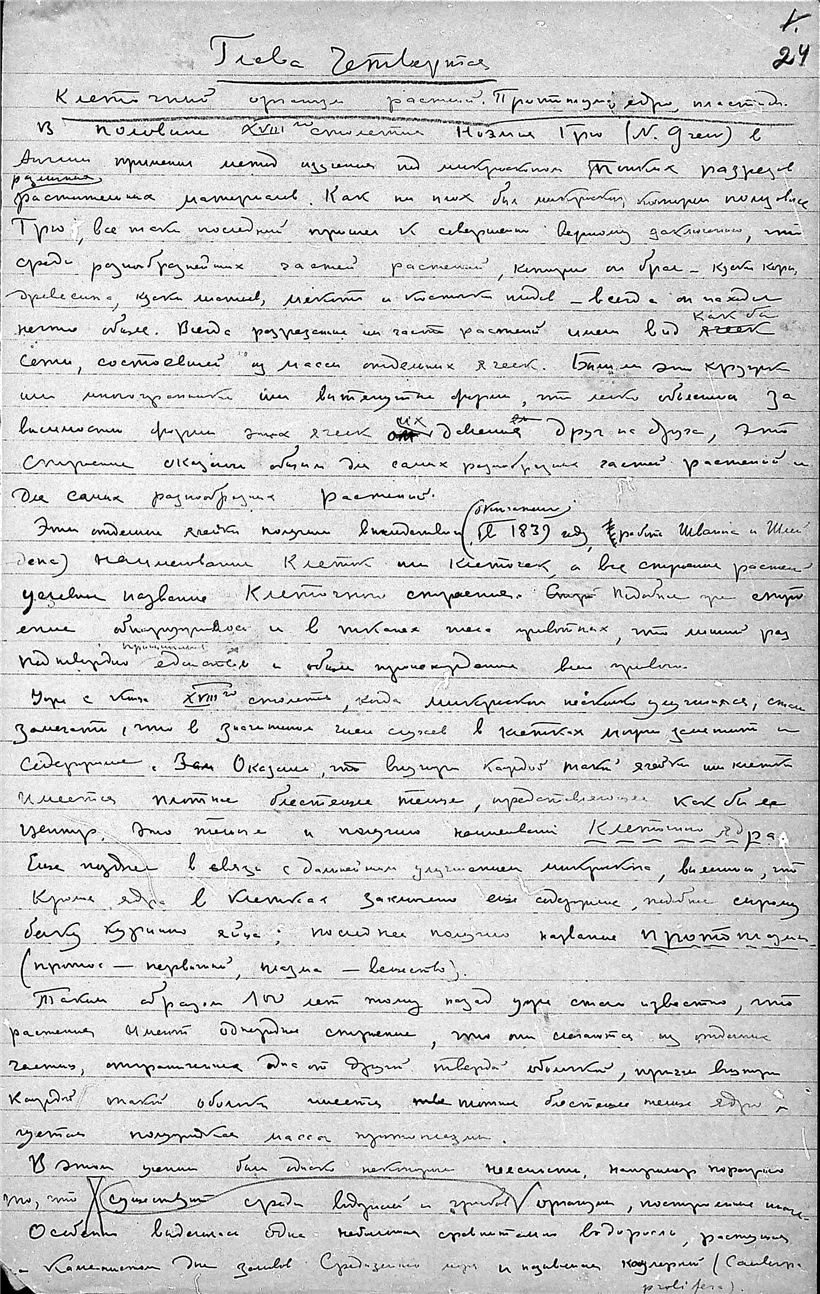 1.
24
Глава Четвертая
Клеточный организм растений. Протоплазма, ядро, пластиды.
В половине XVIII го столетия Ноэмия Грю (N. Grew) в
Англии применил метод изучения под микроскопом тонких разрезов
различных
растительных материалов. Как ни плох был микроскоп, которым пользовался
Грю, все таки последний пришел к совершенно верному заключению, что
среди разнообразнейших частей растений, которые он брал – куски коры,
древесина, куски листьев, мякоть и косточки плодов – всегда он находил
как бы
нечто общее. Всегда разрезанные им части растений имели вид ячеек
сети, состоявшей из массы отдельных ячеек. Были ли это кружки
или многогранники или вытянутые формы, что легко объяснимо за
их
висимостью формы этих ячеек от давления друг на друга, это
строение оказалось общим для самых разнообразных частей растений и
для самых разнообразных растений.
Эти отдельные ячейки получили впоследствии (в 1839 году, работы Шванна и Шлей
дена) наименование Клеток или Клеточек, а все строение растений
название Клеточного строения. подобное же строе
ение обнаружилось и в тканях тела животных, что лишний раз
подтвердило единство и общее происхождение всего живого.
Уже с конца XVIII го столетия, когда микроскоп несколько улучшился, стали
замечать, что в значительном числе случаев в клетках можно заметить и
содержимое. Оказалось, что внутри каждой такой ячейки или клетки
имеется плотное блестящее тельце, представляющее как бы ее
центр. Это тельце и получило наименование Клеточного ядра.
Еще позднее в связи с дальнейшим улучшением микроскопа, выяснили, что
кроме ядра в клетках заключено еще содержимое, подобное сырому
белку куриного яйца; последнее получило название протоплазмы
(протос – первичный, плазма – вещество).
Таким образом 100 лет тому назад уже стало известно, что
растения имеют однородное строение, что они слагаются из отдельных
частиц, отграниченных одна от другой твердой оболочкой, причем внутри
каждой такой оболочки имеется плотное блестящее тельце ядро и
густая полужидкая масса протоплазмы.
В этом учении были однако некоторые неясности, например поражало
то, что существуют среди водорослей и грибов организмы, построенные иначе.
Особенно выделялась одна небольшая сравнительно водоросль, растущая
на каменистом дне заливов Средиземного моря и называемая каулерпой (Caulerpa
prolifera).